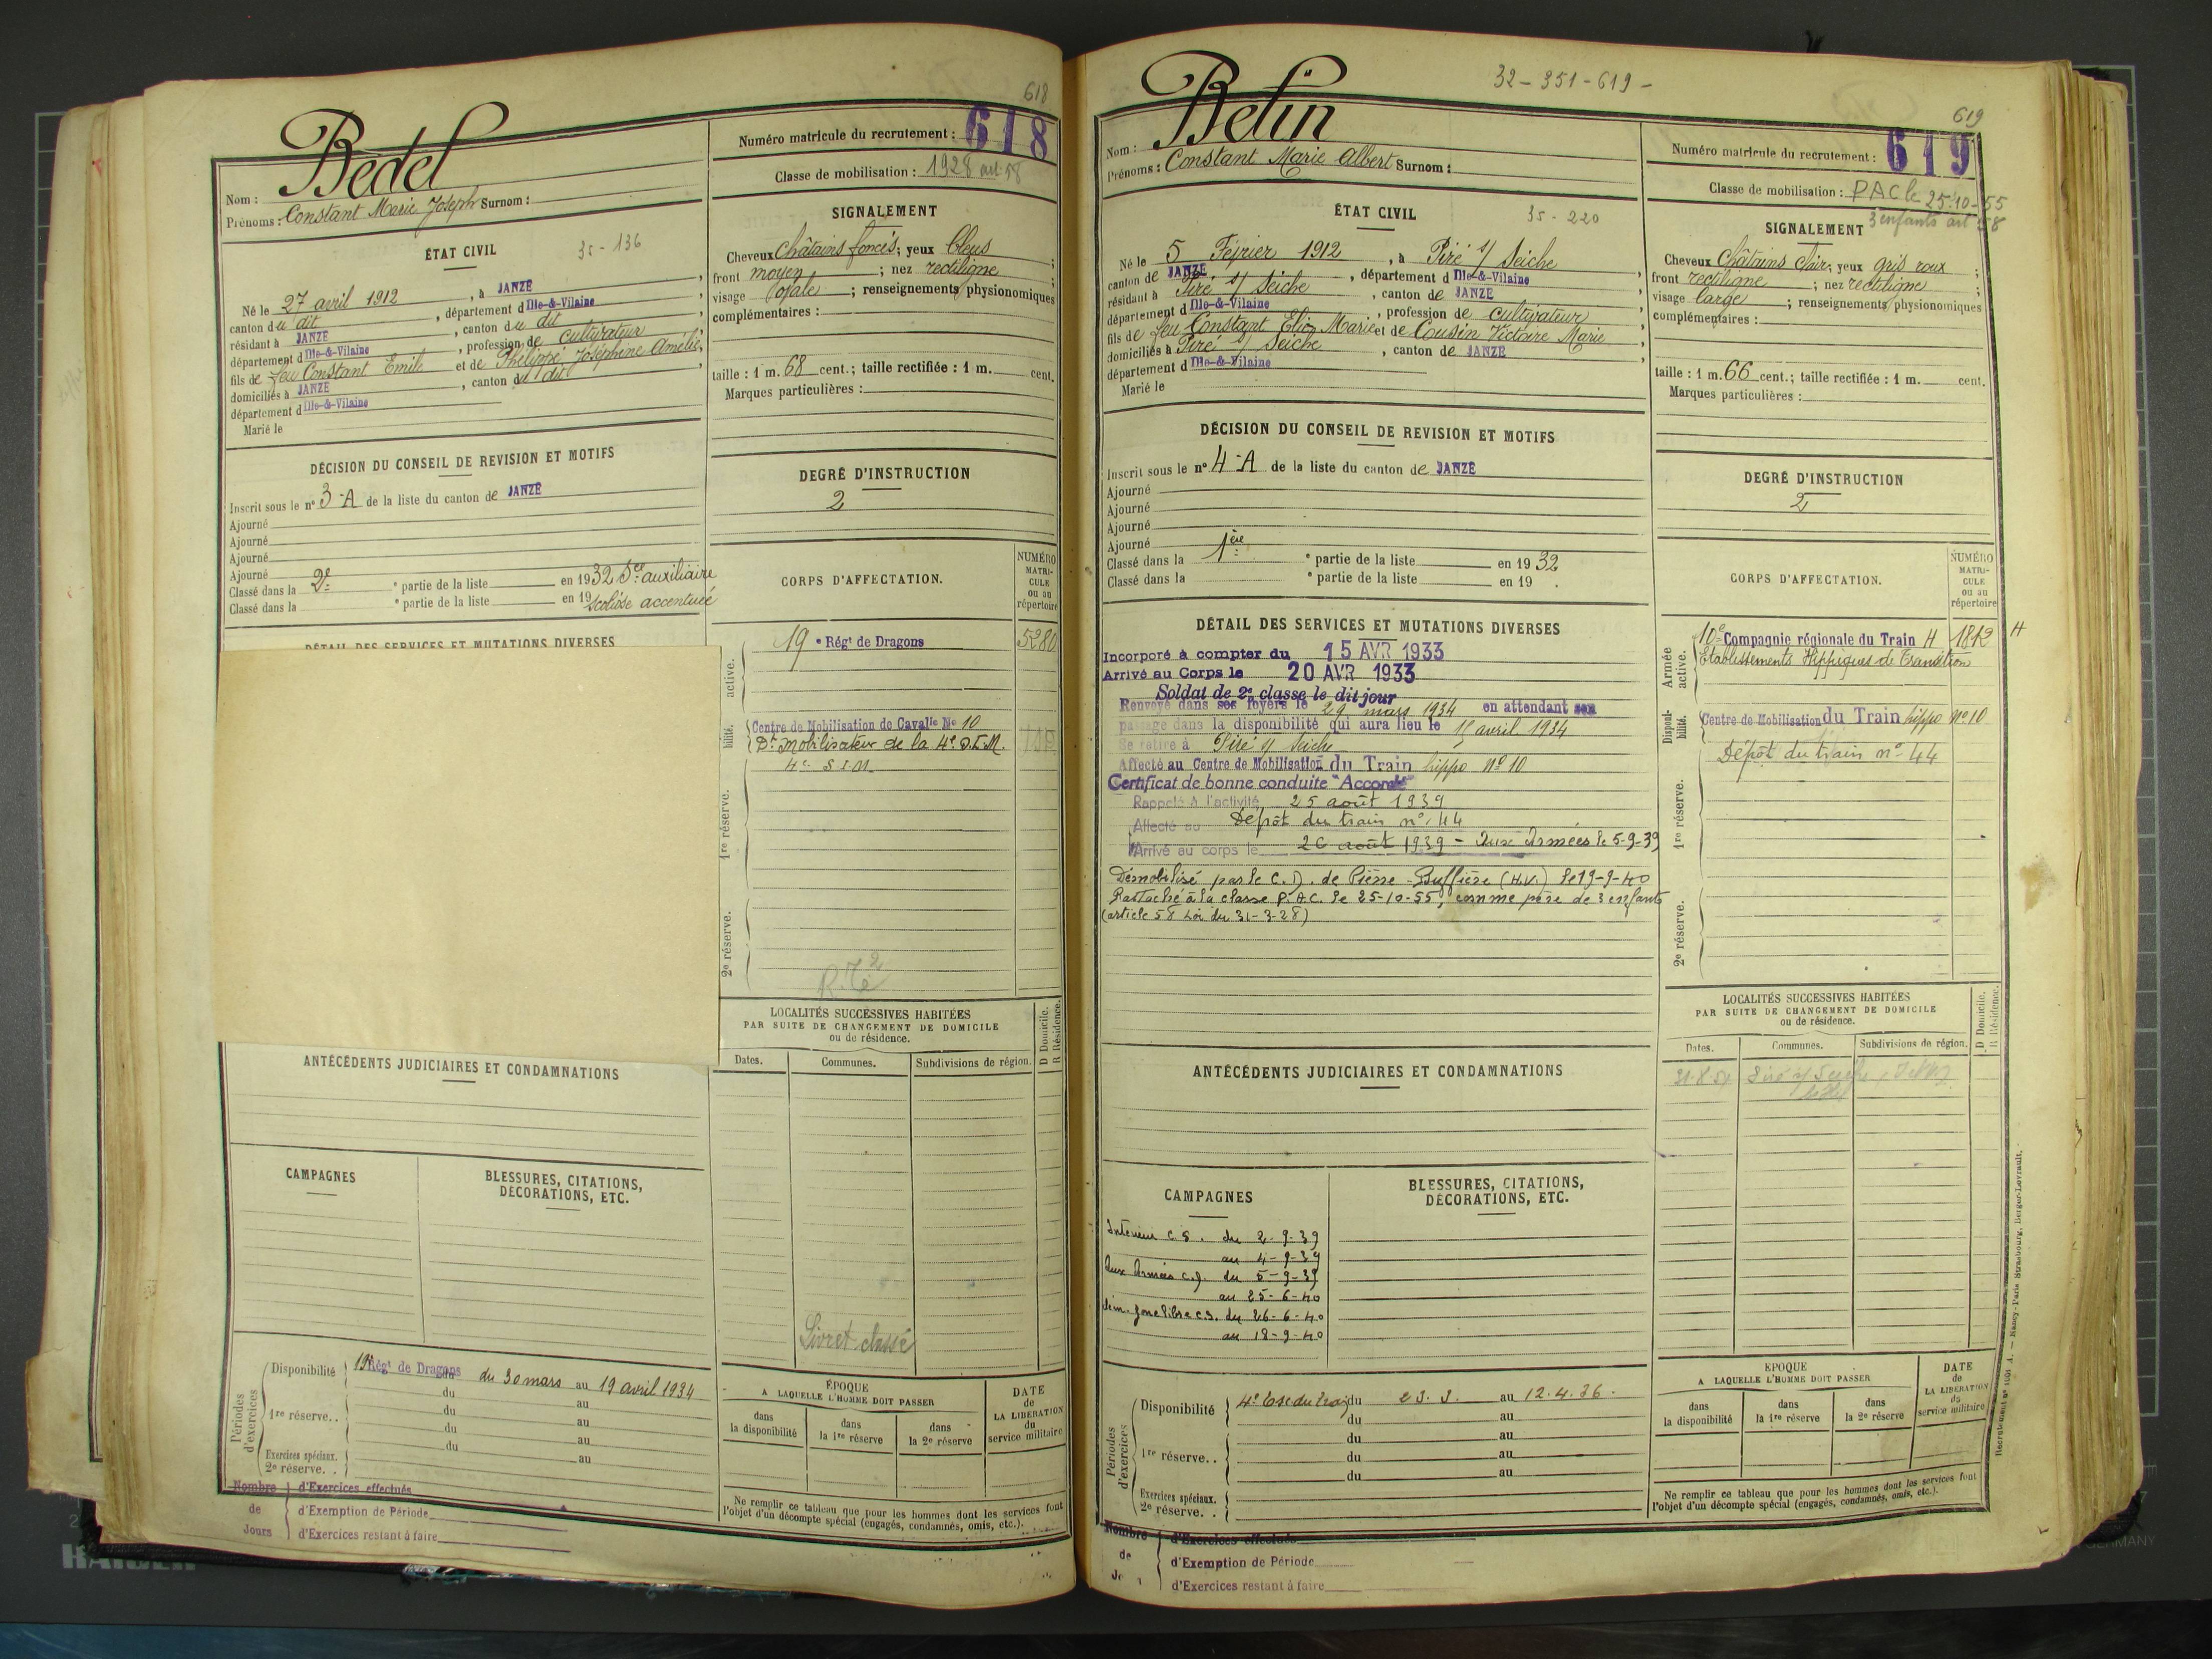 618
Bedel
Nom :
Prénoms : Constant Marie Joseph Surnom :
Numéro matricule du recrutement : 618
Classe de mobilisation : 1928 art. 58
ÉTAT CIVIL
35 - 136
Né le 27 avril 1912, à JANZÉ
canton du dit, département d Ille-&-Vilaine,
résidant à JANZÉ, canton du dit,
département d Ille-&-Vilaine, profession de cultivateur,
fils de feu Constant Emile et de Phelippé Joséphine Amélie,
domiciliés à JANZÉ, canton du dit,
département d Ille-&-Vilaine
Marié le
SIGNALEMENT
Cheveux châtains foncés; yeux bleus;
front moyen; nez rectiligne;
visage ovale; renseignements physionomiques
complémentaires :
taille : 1 m. 68 cent.; taille rectifiée : 1 m. cent.
Marques particulières :
DÉCISION DU CONSEIL DE REVISION ET MOTIFS
Inscrit sous le n° 3-A de la liste du canton de JANZÉ
Ajourné
Ajourné
Ajourné
Ajourné
Classé dans la 2e ° partie de la liste en 1932 Sce auxiliaire
Classé dans la ° partie de la liste en 19 Scoliose accentuée
DEGRÉ D'INSTRUCTION
2
DÉTAIL DES SERVICES ET MUTATIONS DIVERSES
CORPS D'AFFECTATION.
NUMÉRO
MATRI-
CULE
ou au
répertoire
active.
19 e Régt de Dragons 5280
bilité.
Centre de Mobilisation de Cavalie No 10
Dt Mobilisateur de la 4e D.I.M.
4e S.I.M.
1re réserve.
2e réserve.
LOCALITÉS SUCCESSIVES HABITÉES
PAR SUITE DE CHANGEMENT DE DOMICILE
ou de résidence.
D Domicile.
R Résidence.
Dates.
Communes.
Subdivisions de région.
Livret classé
ANTÉCÉDENTS JUDICIAIRES ET CONDAMNATIONS
CAMPAGNES
BLESSURES, CITATIONS,
DÉCORATIONS, ETC.
Périodes
d'exercices
Disponibilité 19e Régt de Dragons du 30 mars au 19 avril 1934
du au
1re réserve.. du au
du au
Exercices spéciaux. du au
2e réserve. .
Nombre
de
Jours
d'Exercices effectués
d'Exemption de Période
d'Exercices restant à faire
ÉPOQUE
A LAQUELLE L'HOMME DOIT PASSER
dans
la disponibilité
dans
la 1re réserve
dans
la 2e réserve
DATE
de
LA LIBÉRATION
du
service militaire
Ne remplir ce tableau que pour les hommes dont les services font
l'objet d'un décompte spécial (engagés, condamnés, omis, etc.).
32 - 351 - 619 -
619
Belin
Nom :
Prénoms : Constant Marie Albert Surnom :
Numéro matricule du recrutement : 619
Classe de mobilisation : PAC le 25-10-55
3 enfants art 58
ÉTAT CIVIL
35 - 220
Né le 5 Février 1912, à Piré s/ Seiche
canton de JANZÉ, département d Ille-&-Vilaine,
résidant à Piré s/ Seiche, canton de JANZÉ,
département d Ille-&-Vilaine, profession de cultivateur,
fils de feu Constant Marie et de Cousin Victoire Marie,
domiciliés à Piré s/ Seiche, canton de JANZÉ,
département d Ille-&-Vilaine
Marié le
SIGNALEMENT
Cheveux châtains clair; yeux gris roux;
front rectiligne; nez rectiligne;
visage large; renseignements physionomiques
complémentaires :
taille : 1 m. 66 cent.; taille rectifiée : 1 m. cent.
Marques particulières :
DÉCISION DU CONSEIL DE REVISION ET MOTIFS
Inscrit sous le n° 4-A de la liste du canton de JANZÉ
Ajourné
Ajourné
Ajourné
Ajourné
Classé dans la 1ère ° partie de la liste en 1932
Classé dans la ° partie de la liste en 19 .
DEGRÉ D'INSTRUCTION
2
DÉTAIL DES SERVICES ET MUTATIONS DIVERSES
Incorporé à compter du 15 AVR 1933
Arrivé au Corps le 20 AVR 1933
Soldat de 2e classe le dit jour
Renvoyé dans ses foyers le 29 mars 1934 en attendant son
passage dans la disponibilité qui aura lieu le 15 avril 1934
Se retire à Piré s/ Seiche
Affecté au Centre de Mobilisation du Train hippo No 10
Certificat de bonne conduite "Accordé"
Rappelé à l'activité 25 août 1939
Affecté au Dépôt du train n° 44
Arrivé au corps le 26 août 1939 - Aux Armées le 5-9-39
Démobilisé par le C.D. de Pierre-Buffière (H.V.) le 19-9-40
Rattaché à la classe P.A.C. le 25-10-55, comme père de 3 enfants
(article 58 Loi du 31-3-28)
CORPS D'AFFECTATION.
NUMÉRO
MATRI-
CULE
ou au
répertoire
Armée
active.
10e Compagnie régionale du Train H 1812 H
Etablissements Hippiques de Transition
Disponi-
bilité.
Centre de Mobilisation du Train hippo No 10
Dépôt du train n° 44
1re réserve.
2e réserve.
LOCALITÉS SUCCESSIVES HABITÉES
PAR SUITE DE CHANGEMENT DE DOMICILE
ou de résidence.
D Domicile.
R Résidence.
Dates.
Communes.
Subdivisions de région.
Piré s/ Seiche
ANTÉCÉDENTS JUDICIAIRES ET CONDAMNATIONS
CAMPAGNES
Intérieur C.S. du 2-9-39
au 4-9-39
Aux Armées du 5-9-39
au 25-6-40
zone libre C.S. du 26-6-40
au 18-9-40
BLESSURES, CITATIONS,
DÉCORATIONS, ETC.
Périodes
d'exercices
Disponibilité 4e du Train du 23.3. au 12.4.36.
du au
du au
1re réserve.. du au
du au
Exercices spéciaux.
2e réserve. .
Nombre
de
d'Exercices effectués
d'Exemption de Période
d'Exercices restant à faire
ÉPOQUE
A LAQUELLE L'HOMME DOIT PASSER
dans
la disponibilité
dans
la 1re réserve
dans
la 2e réserve
DATE
de
LA LIBÉRATION
du
service militaire
Ne remplir ce tableau que pour les hommes dont les services font
l'objet d'un décompte spécial (engagés, condamnés, omis, etc.).
Nancy-Paris Strasbourg, Berger-Levrault.
GERMANY